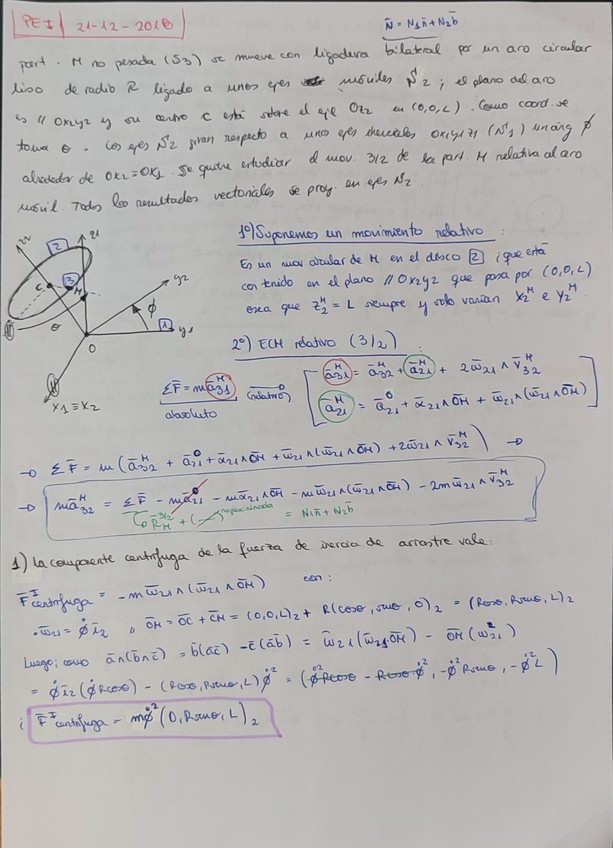 PEI | 21-12-2018
N̄ = N₁n̄ + N₂b̄
part. M no pesada (S3) se mueve con ligadura bilateral por un aro circular
liso de radio R ligado a unos ejes móviles S2; el plano del aro
es // Ox₂y₂ y su centro C está sobre el eje Oz₂ en (0,0,L). Como coord. se
toma θ. Los ejes S2 giran respecto a unos ejes inerciales Ox₁y₁z₁ (S1) un áng ϕ
alrededor de Ox₂=Ox₁. Se quiere estudiar el mov. 3/2 de la part. M relativa al aro
móvil. Todos los resultados vectoriales se proy. en ejes S2.
z₂
z₁
2
C
3
M
y₂
ϕ
1
y₁
θ
O
x₁≡x₂
1º) Suponemos un movimiento relativo:
Es un mov. circular de M en el disco 2 ¡que está
contenido en el plano // Ox₂y₂ que pasa por (0,0,L)
o sea que z₂ᴹ = L siempre y solo varían x₂ᴹ e y₂ᴹ
2º) ECM relativo (3/2):
ΣF̄ = mā₃₁ᴹ
absoluto
(relativo)
ā₃₁ᴹ = ā₃₂ᴹ + ā₂₁ᴹ + 2ω̄₂₁ ∧ v̄₃₂ᴹ
ā₂₁ᴹ = ā₂₁⁰ + ᾱ₂₁ ∧ ŌM̄ + ω̄₂₁ ∧ (ω̄₂₁ ∧ ŌM̄)
→ ΣF̄ = m(ā₃₂ᴹ + ā₂₁⁰ + ᾱ₂₁ ∧ ŌM̄ + ω̄₂₁ ∧ (ω̄₂₁ ∧ ŌM̄) + 2ω̄₂₁ ∧ v̄₃₂ᴹ) →
→ mā₃₂ᴹ = ΣF̄ - mā₂₁⁰ - mᾱ₂₁ ∧ ŌM̄ - mω̄₂₁ ∧ (ω̄₂₁ ∧ ŌM̄) - 2mω̄₂₁ ∧ v̄₃₂ᴹ
= N₁n̄ + N₂b̄
1) La componente centrífuga de la fuerza de inercia de arrastre vale:
F̄ᴵcentrífuga = -mω̄₂₁ ∧ (ω̄₂₁ ∧ ŌM̄) con:
· ω̄₂₁ = ϕ̇ ī₂ // ŌM̄ = ŌC̄ + C̄M̄ = (0,0,L)₂ + R(cosθ, senθ, 0)₂ = (Rcosθ, Rsenθ, L)₂
Luego; como ā∧(b̄∧c̄) = b̄(āc̄) - c̄(āb̄) = ω̄₂₁(ω̄₂₁ŌM̄) - ŌM̄(ω₂₁²)
= ϕ̇ ī₂(ϕ̇Rcosθ) - (Rcosθ, Rsenθ, L)ϕ̇² = (ϕ̇²Rcosθ - Rcosθϕ̇², -ϕ̇²Rsenθ, -ϕ̇²L)
¡ F̄ᴵcentrífuga = mϕ̇²(0, Rsenθ, L)₂